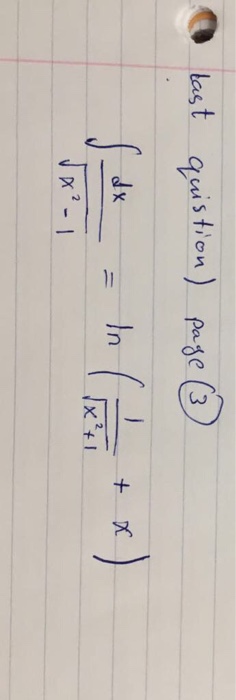 last quistion) page (3)
∫ dx / √x² - 1 = ln ( 1 / √x² + 1 + x )